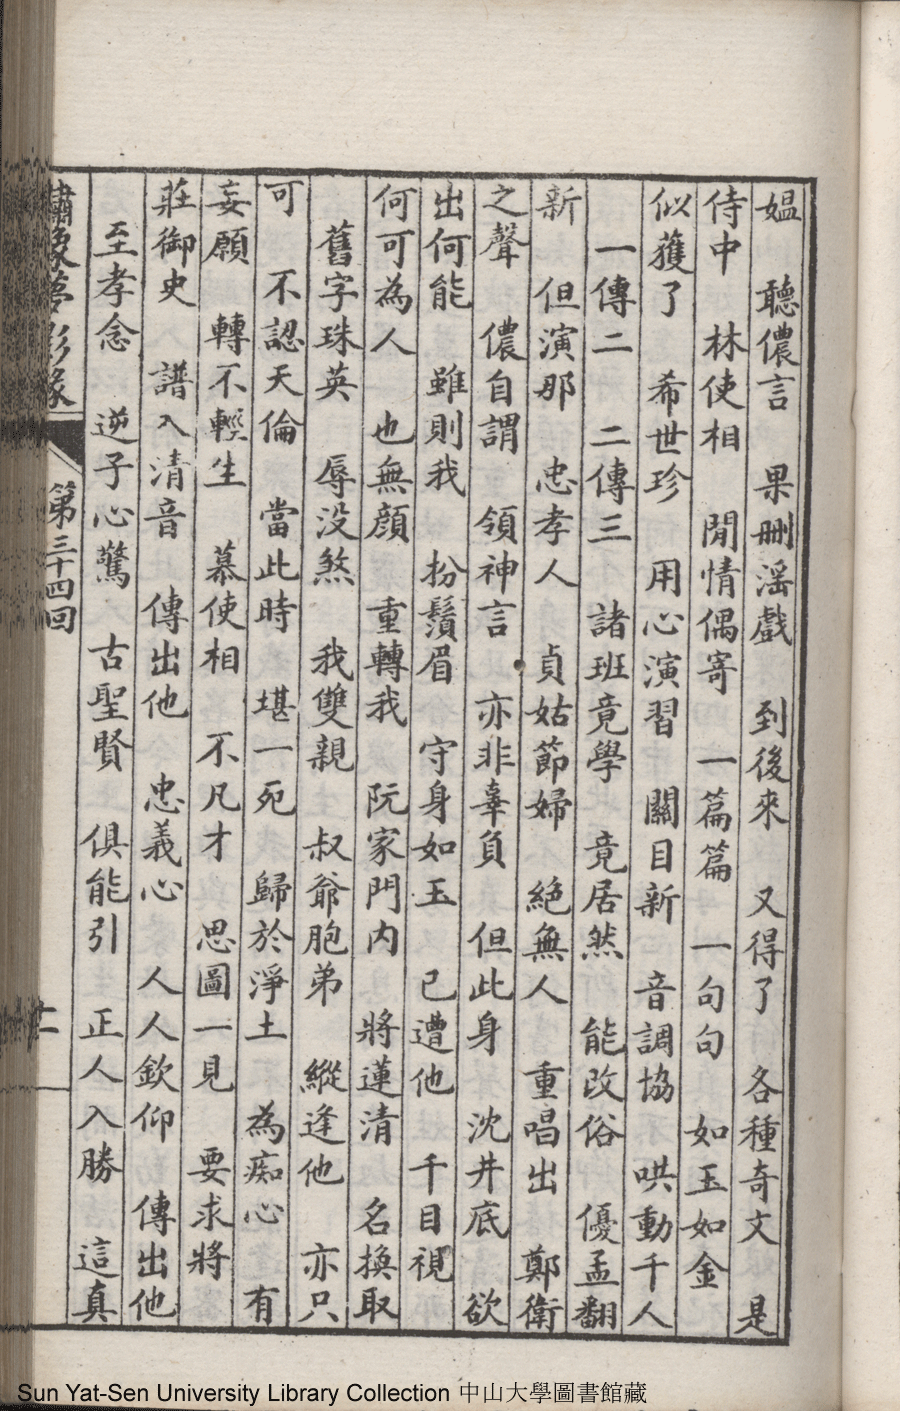 媼　聽儂言　果刪滛戲　到後來　又得了　各種奇文　是
侍中　林使相　閒情偶寄　一篇篇　一句句　如玉如金
似獲了　希世珍　用心演習　關目新　音調協　哄動千人
一傳二　二傳三　諸班竟學　竟居然　能改俗　優孟翻
新　但演那　忠孝人　貞姑節婦　絕無人　重唱出　鄭衛
之聲　儂自謂　領神言　亦非辜負　但此身　沈井底　欲
出何能　雖則我　扮鬚眉　守身如玉　已遭他　千目視
何可為人　也無顔　重轉我　阮家門内　將蓮清　名換取
舊字珠英　辱没煞　我雙親　叔爺胞弟　縱逢他　亦只
可　不認天倫　當此時　堪一死　歸於淨土　為痴心　有
妄願　轉不輕生　慕使相　不凡才　思圖一見　要求將
莊御史　譜入清音　傳出他　忠義心　人人欽仰　傳出他
至孝念　逆子心驚　古聖賢　俱能引　正人入勝　這真
繡像夢影緣　第三十四回
Sun Yat-Sen University Library Collection 中山大學圖書館藏